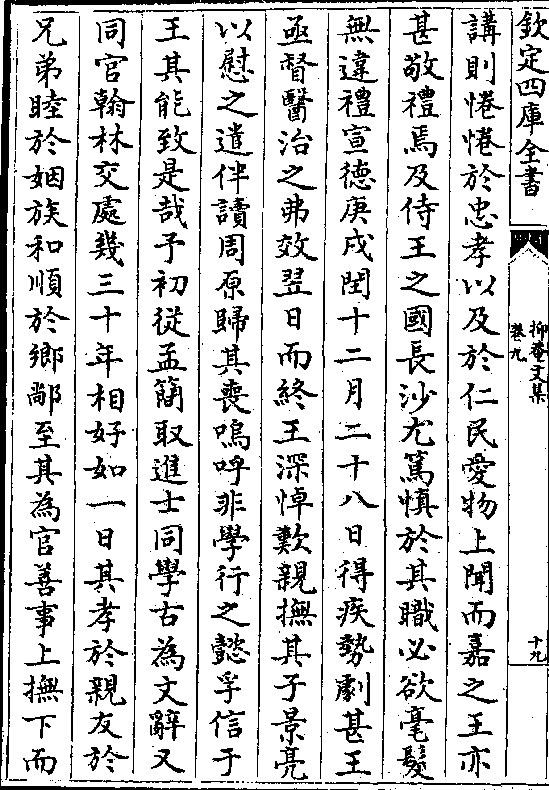 欽定四庫全書
抑菴文集
卷九
十九
講則惓惓於忠孝以及於仁民愛物上聞而嘉之王亦
甚敬禮焉及侍王之國長沙尤篤慎於其職必欲毫髮
無違禮宣德庚戌閏十二月二十八日得疾勢劇甚王
亟督醫治之弗效翌日而終王深悼歎親撫其子景亮
以慰之遣伴讀周原歸其喪嗚呼非學行之懿孚信于
王其能致是哉予初從孟簡取進士同學古為文辭又
同官翰林交處幾三十年相好如一日其孝於親友於
兄弟睦於姻族和順於鄉鄰至其為官善事上撫下而